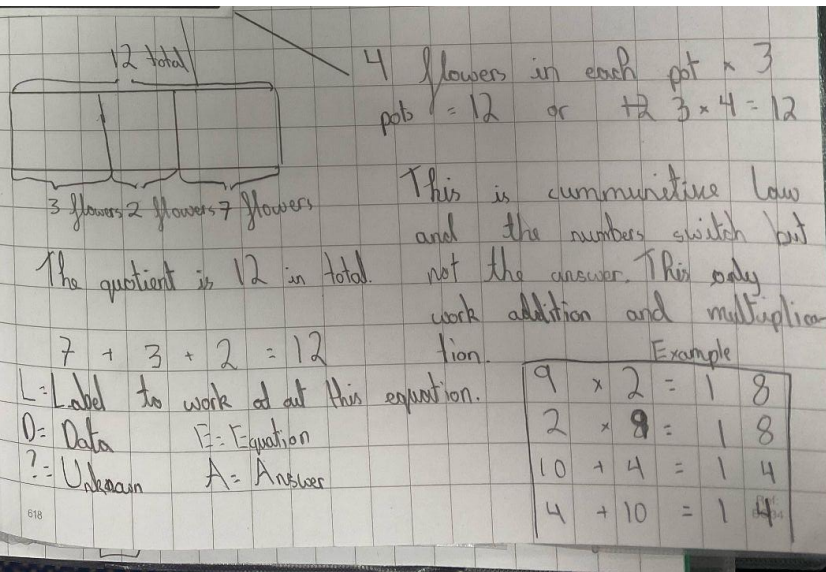 12 total
3 flowers 2 flowers 7 flowers
The quotient is 12 in total.
7 + 3 + 2 = 12
L=Label to work out this equation.
D= Data E= Equation
?= Unknown A= Answer
618
4 flowers in each pot × 3
pots = 12 or 3 × 4 = 12
This is cummunitive law
and the numbers switch but
not the answer. This only
work addition and multiplica
tion.
Example
9 × 2 = 18
2 × 9 = 18
10 + 4 = 14
4 + 10 = 14